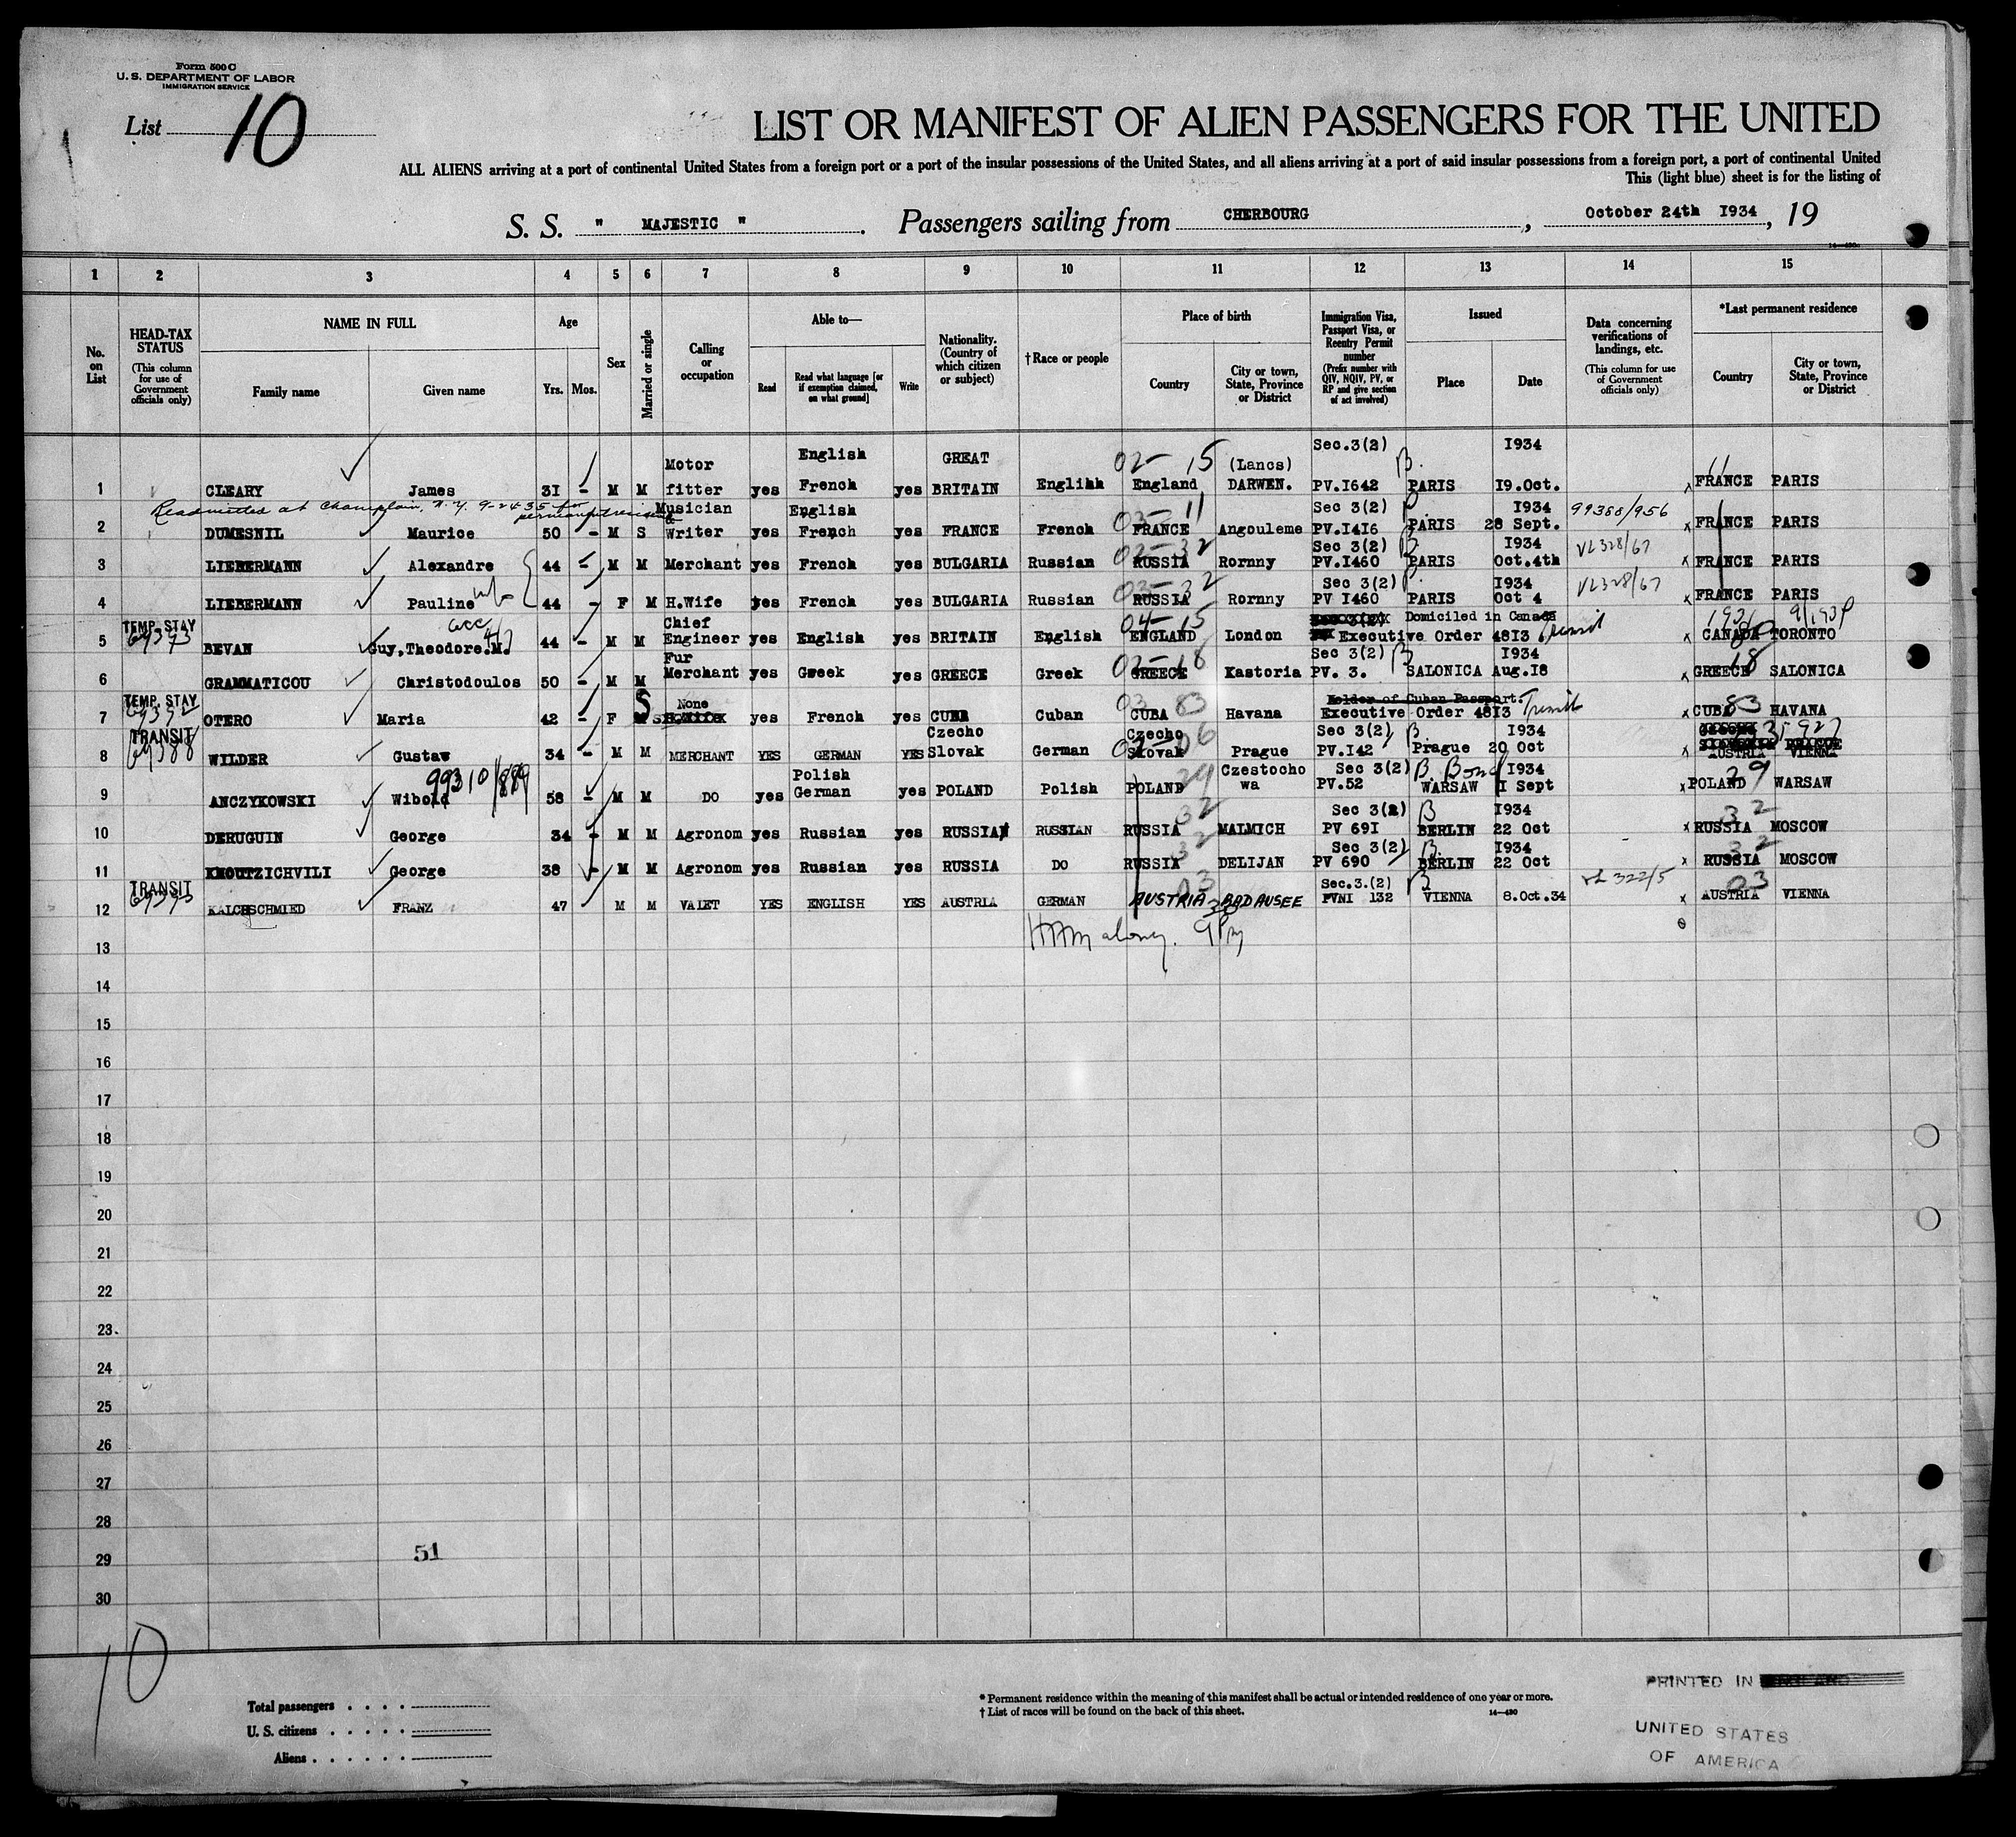 Form 500 C
U. S. DEPARTMENT OF LABOR
IMMIGRATION SERVICE
List 10
LIST OR MANIFEST OF ALIEN PASSENGERS FOR THE UNITED
ALL ALIENS arriving at a port of continental United States from a foreign port or a port of the insular possessions of the United States, and all aliens arriving at a port of said insular possessions from a foreign port, a port of continental United
This (light blue) sheet is for the listing of
S. S. " MAJESTIC " . Passengers sailing from CHERBOURG , October 24th 1934 , 19
14—490
1 2 3 4 5 6 7 8 9 10 11 12 13 14 15
No. on List
HEAD-TAX STATUS (This column for use of Government officials only)
NAME IN FULL Family name Given name
Age Yrs. Mos.
Sex
Married or single
Calling or occupation
Able to— Read Read what language [or if exemption claimed, on what ground] Write
Nationality. (Country of which citizen or subject)
†Race or people
Place of birth Country City or town, State, Province or District
Immigration Visa, Passport Visa, or Reentry Permit number (Prefix number with QIV, NQIV, PV, or RP and give section of act involved)
Issued Place Date
Data concerning verifications of landings, etc. (This column for use of Government officials only)
*Last permanent residence Country City or town, State, Province or District
1 CLEARY James 31 - M M Motor fitter yes English French yes GREAT BRITAIN English 02- 15 England (Lancs) DARWEN. Sec.3(2) PV.1642 PARIS 1934 19.Oct. 11 FRANCE PARIS
Readmitted at Champlain, N.Y. 9-24-35 for permanent residence
2 DUMESNIL Maurice 50 - M S Musician & Writer yes English French yes FRANCE French 03- 11 FRANCE Angouleme Sec 3(2) PV.1416 PARIS 1934 28 Sept. 99388/956 x FRANCE PARIS
3 LIEBERMANN Alexandre 44 - M M Merchant yes French yes BULGARIA Russian 02-32 RUSSIA Rornny Sec 3(2) PV.1460 PARIS 1934 Oct.4th VL328/67 x FRANCE PARIS
4 LIEBERMANN Pauline 44 - F M H.Wife yes French yes BULGARIA Russian 03-32 RUSSIA Rornny Sec 3(2) PV 1460 PARIS 1934 Oct 4 VL328/67 x FRANCE PARIS
5 TEMP. STAY BEVAN Guy,Theodore.M. 44 - M M Chief Engineer yes English yes BRITAIN English 04-15 ENGLAND London Domiciled in Canada Executive Order 4813 Transit x CANADA TORONTO
6 GRAMMATICOU Christodoulos 50 - M M Fur Merchant yes Greek yes GREECE Greek 02-18 GREECE Kastoria Sec 3(2) PV. 3. SALONICA 1934 Aug.18 18 x GREECE SALONICA
7 TEMP. STAY OTERO Maria 42 - F S None H.Wife yes French yes CUBA Cuban 03 83 CUBA Havana Holder of Cuban Passport. Executive Order 4813 Transit x CUBA 83 HAVANA
8 TRANSIT 69388 WILDER Gustaw 34 - M M MERCHANT YES GERMAN YES Czecho Slovak German 06 Czecho Slovak Prague Sec 3(2) PV.142 Prague 1934 20 Oct x AUSTRIA VIENNA
9 ANCZYKOWSKI Wibold 99310/889 58 - M M DO yes Polish German yes POLAND Polish 29 POLAND Czestocho wa Sec 3(2) PV.52 WARSAW 1934 1 Sept x POLAND 29 WARSAW
10 DERUGUIN George 34 - M M Agronom yes Russian yes RUSSIA RUSSIAN 32 RUSSIA MALMICH Sec 3(2) PV 691 BERLIN 1934 22 Oct 32 x RUSSIA MOSCOW
11 KNOUTZICHVILI George 38 - M M Agronom yes Russian yes RUSSIA DO 32 RUSSIA DELIJAN Sec 3(2) PV 690 BERLIN 1934 22 Oct 32 x RUSSIA MOSCOW
12 TRANSIT 69393 KALCHSCHMIED FRANZ 47 M M VALET YES ENGLISH YES AUSTRIA GERMAN 03 AUSTRIA BAD AUSEE Sec.3.(2) PVNI 132 VIENNA 8.Oct.34 VL 322/5 03 x AUSTRIA VIENNA
13
14
15
16
17
18
19
20
21
22
23
24
25
26
27
28
29
30
51
10
Total passengers
U. S. citizens
Aliens
* Permanent residence within the meaning of this manifest shall be actual or intended residence of one year or more.
† List of races will be found on the back of this sheet.
14—490
PRINTED IN
UNITED STATES
OF AMERICA